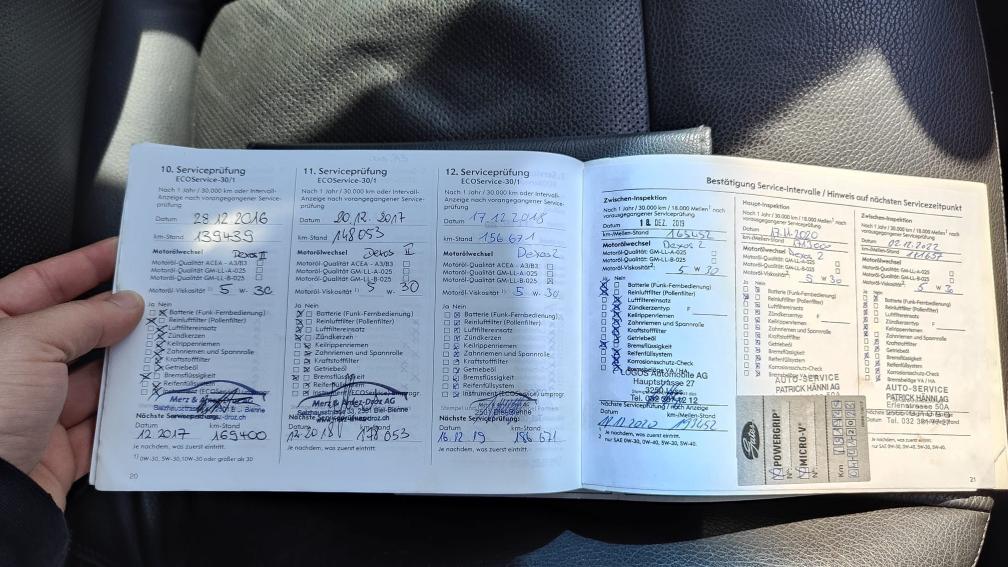 10. Serviceprüfung
ECOService-30/1
Nach 1 Jahr / 30.000 km oder Intervall-
Anzeige nach vorangegangener Service-
prüfung
Datum 28 12 2016
km-Stand 139439
Motorölwechsel Dexos II
Motoröl-Qualität ACEA - A3/B3
Motoröl-Qualität GM-LL-A-025
Motoröl-Qualität GM-LL-B-025
Motoröl-Viskosität 1) 5 W- 30
Ja Nein
Batterie (Funk-Fernbedienung)
Reinluftfilter (Pollenfilter)
Luftfiltereinsatz
Zündkerzen
Keilrippenriemen
Zahnriemen und Spannrolle
Kraftstofffilter
Getriebeöl
Bremsflüssigkeit
Reifenfüllsystem
Merz & Amez-Droz AG
Nächste Serviceprüfung:
Datum km-Stand
12 2017 169400
Je nachdem, was zuerst eintritt.
1) 0W-30, 5W-30, 10W-30 oder größer als 30
20
11. Serviceprüfung
ECOService-30/1
Nach 1 Jahr / 30.000 km oder Intervall-
Anzeige nach vorangegangener Service-
prüfung
Datum 20.12. 2017
km-Stand 148053
Motorölwechsel Dexos II
Motoröl-Qualität ACEA - A3/B3
Motoröl-Qualität GM-LL-A-025
Motoröl-Qualität GM-LL-B-025
Motoröl-Viskosität 1) 5 W- 30
Ja Nein
Batterie (Funk-Fernbedienung)
Reinluftfilter (Pollenfilter)
Luftfiltereinsatz
Zündkerzen
Keilrippenriemen
Zahnriemen und Spannrolle
Kraftstofffilter
Getriebeöl
Bremsflüssigkeit
Reifenfüllsystem
Merz & Amez-Droz AG
Nächste Serviceprüfung:
Datum km-Stand
178 053
Je nachdem, was zuerst eintritt.
12. Serviceprüfung
ECOService-30/1
Nach 1 Jahr / 30.000 km oder Intervall-
Anzeige nach vorangegangener Service-
prüfung
Datum 17.12.2018
km-Stand 156 671
Motorölwechsel Dexos 2
Motoröl-Qualität ACEA - A3/B3
Motoröl-Qualität GM-LL-A-025
Motoröl-Qualität GM-LL-B-025
Motoröl-Viskosität 1) 5 W- 30
Ja Nein
Batterie (Funk-Fernbedienung)
Reinluftfilter (Pollenfilter)
Luftfiltereinsatz
Zündkerzen
Keilrippenriemen
Zahnriemen und Spannrolle
Kraftstofffilter
Getriebeöl
Bremsflüssigkeit
Reifenfüllsystem
Nächste Serviceprüfung:
Datum km-Stand
16.12.19 186 671
Je nachdem, was zuerst eintritt.
Bestätigung Service-Intervalle / Hinweis auf nächsten Servicezeitpunkt
Zwischen-Inspektion
Nach 1 Jahr / 30.000 km / 18.000 Meilen1 nach
vorausgegangener Serviceprüfung
Datum 18. DEZ. 2019
km-/Meilen-Stand 163452
Motorölwechsel Dexos 2
Motoröl-Qualität GM-LL-A-025
Motoröl-Qualität GM-LL-B-025
Motoröl-Viskosität2: 5 W 30
Ja Nein
Batterie (Funk-Fernbedienung)
Reinluftfilter (Pollenfilter)
Luftfiltereinsatz
Zündkerzentyp F
Keilrippenriemen
Zahnriemen und Spannrolle
Kraftstofffilter
Getriebeöl
Bremsflüssigkeit
Reifenfüllsystem
Korrosionsschutz-Check
Bremsbeläge VA / HA
LOGOS Automobile AG
Hauptstrasse 27
Datum km-/Meilen-Stand
Je nachdem, was zuerst eintritt.
nur SAE 0W-30, 0W-40, 5W-30, 5W-40.
Haupt-Inspektion
Nach 1 Jahr / 30.000 km / 18.000 Meilen1 nach
vorausgegangener Serviceprüfung
Datum 17.11.2020
km-/Meilen-Stand
Motorölwechsel Dexos 2
Motoröl-Qualität GM-LL-A-025
Motoröl-Qualität GM-LL-B-025
Motoröl-Viskosität2: 5 W 30
Ja Nein
Batterie (Funk-Fernbedienung)
Reinluftfilter (Pollenfilter)
Luftfiltereinsatz
Zündkerzentyp F
Keilrippenriemen
Zahnriemen und Spannrolle
Kraftstofffilter
Getriebeöl
Bremsflüssigkeit
Reifenfüllsystem
Korrosionsschutz-Check
Bremsbeläge VA / HA
AUTO-SERVICE
PATRICK HÄNNI AG
Gates
POWERGRIP
MICRO-V
Km
Zwischen-Inspektion
Nach 1 Jahr / 30.000 km / 18.000 Meilen1 nach
vorausgegangener Serviceprüfung
Datum
km-/Meilen-Stand
Motorölwechsel
Motoröl-Qualität GM-LL-A-025
Motoröl-Qualität GM-LL-B-025
Motoröl-Viskosität2: 5 W 30
Ja Nein
Batterie (Funk-Fernbedienung)
Reinluftfilter (Pollenfilter)
Luftfiltereinsatz
Zündkerzentyp F
Keilrippenriemen
Zahnriemen und Spannrolle
Kraftstofffilter
Getriebeöl
Bremsflüssigkeit
Reifenfüllsystem
Korrosionsschutz-Check
Bremsbeläge VA / HA
AUTO-SERVICE
PATRICK HÄNNI AG
Erlenstrasse 50A
Je nachdem, was zuerst eintritt.
nur SAE 0W-30, 0W-40, 5W-30, 5W-40.
21